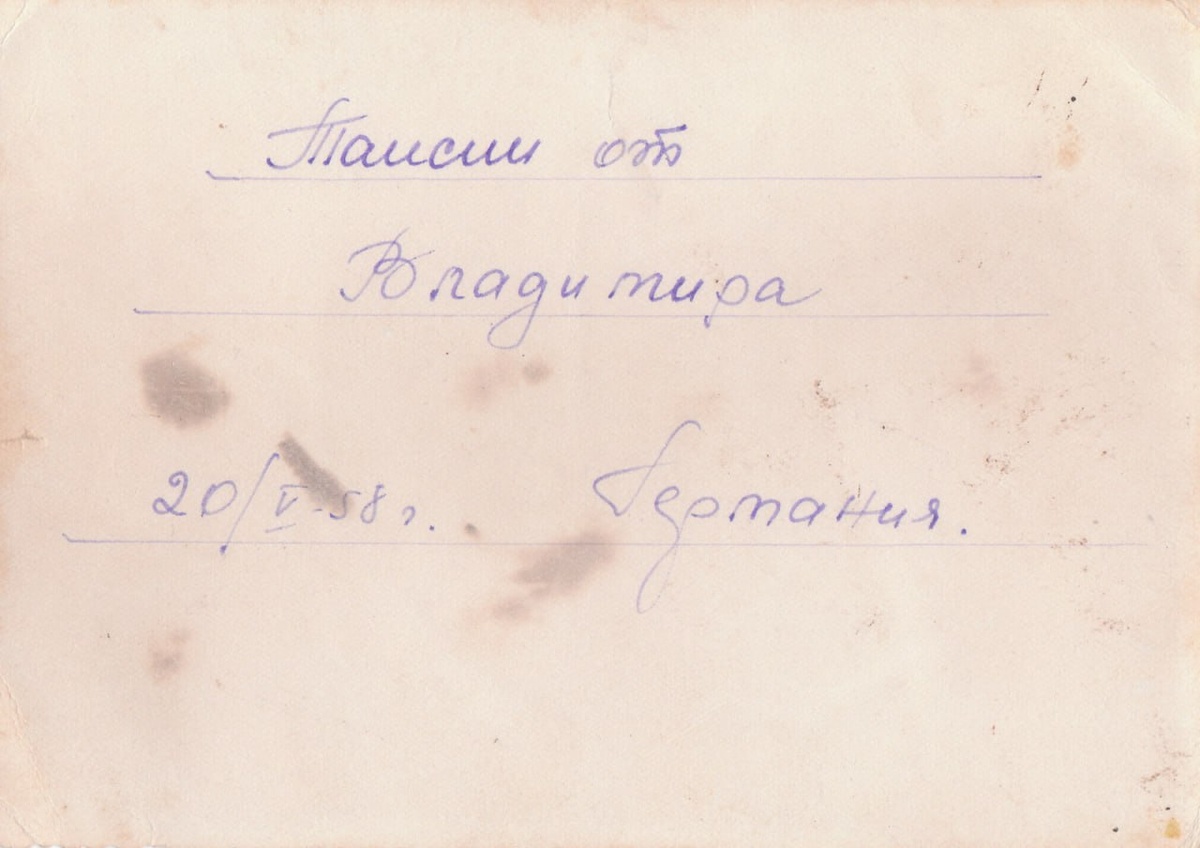 Таисии от
Владимира
20/V-58 г. Германия.